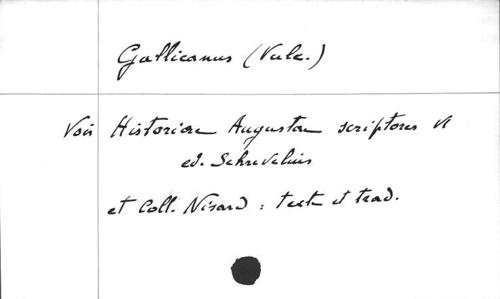 Gallicanus (Vulc.)
Voir Historiae Augustae scriptores VI
ed. Schrevelius
et Coll. Nisard : texte et trad.